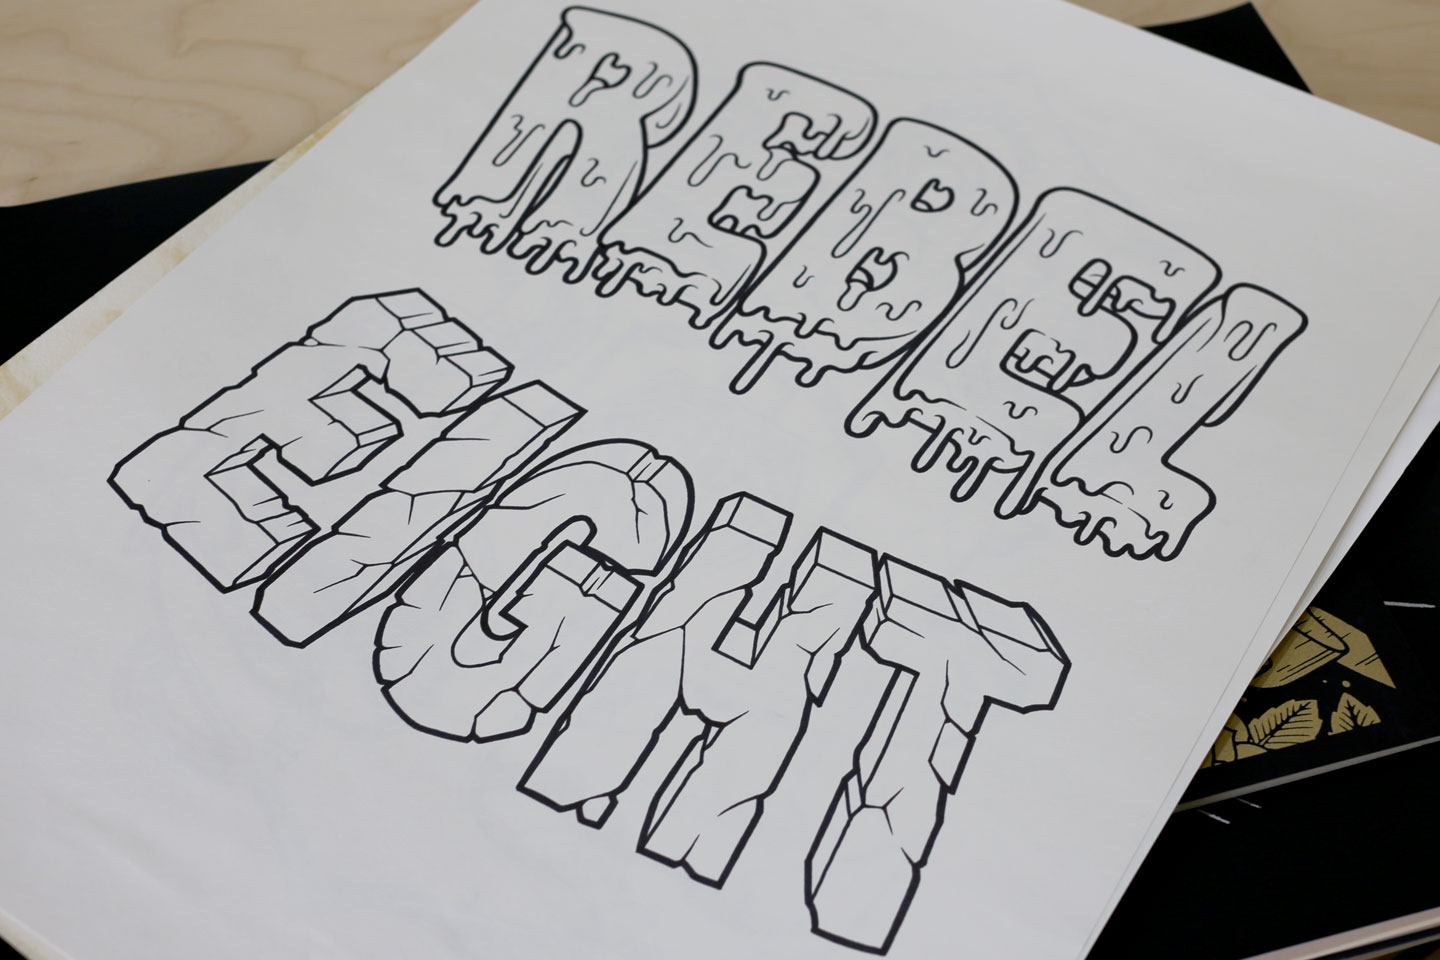 REBEL
EIGHT